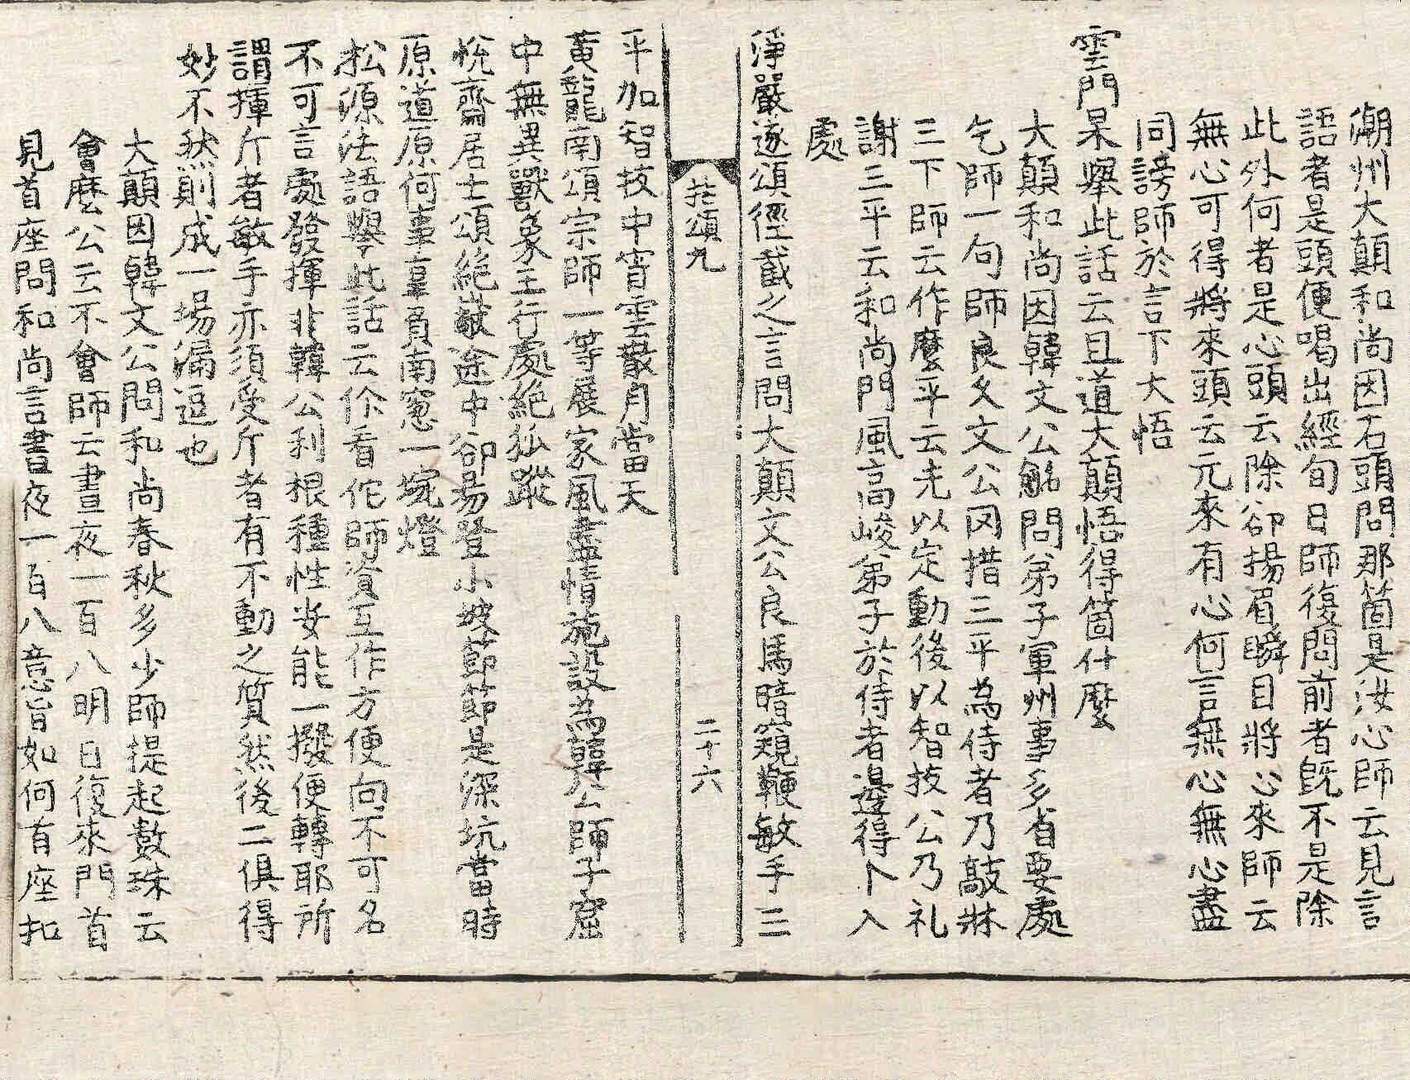 潮州大顛和尚因石頭問那箇是汝心師云見言
語者是頭便喝出經旬日師復問前者旣不是除
此外何者是心頭云除卻揚眉瞬目將心來師云
無心可得將來頭云元來有心何言無心無心盡
同謗師於言下大悟
雲門杲舉此話云且道大顛悟得箇什麼
大顛和尚因韓文公觧問弟子軍州事多省要處
乞師一句師良久文公罔措三平為侍者乃敲牀
三下師云作麼平云先以定動後以智拔公乃礼
謝三平云和尚門風高峻弟子於侍者邊得卜入
處
淨嚴遂頌徑截之言問大顛文公良馬暗窺鞭敏手三
拈頌九
二十六
平加智技中宵雲散月當天
黃龍南頌宗師一等展家風盡情施設為韓公師子窟
中無異獸象王行處絕狐蹤
悅齋居士頌絕巘途中卻易登小坡節節是深坑當時
原道原何事辜負南窓一埦燈
松源法語舉此話云伱看佗師資互作方便向不可名
不可言處發揮非韓公利根種性安能一撥便轉耶所
謂揮斤者敏手亦須受斤者有不動之質然後二俱得
妙不然則成一場漏逗也
大顛因韓文公問和尚春秋多少師提起數珠云
會麼公云不會師云晝夜一百八明日復來門首
見首座問和尚言晝夜一百八意旨如何首座扣